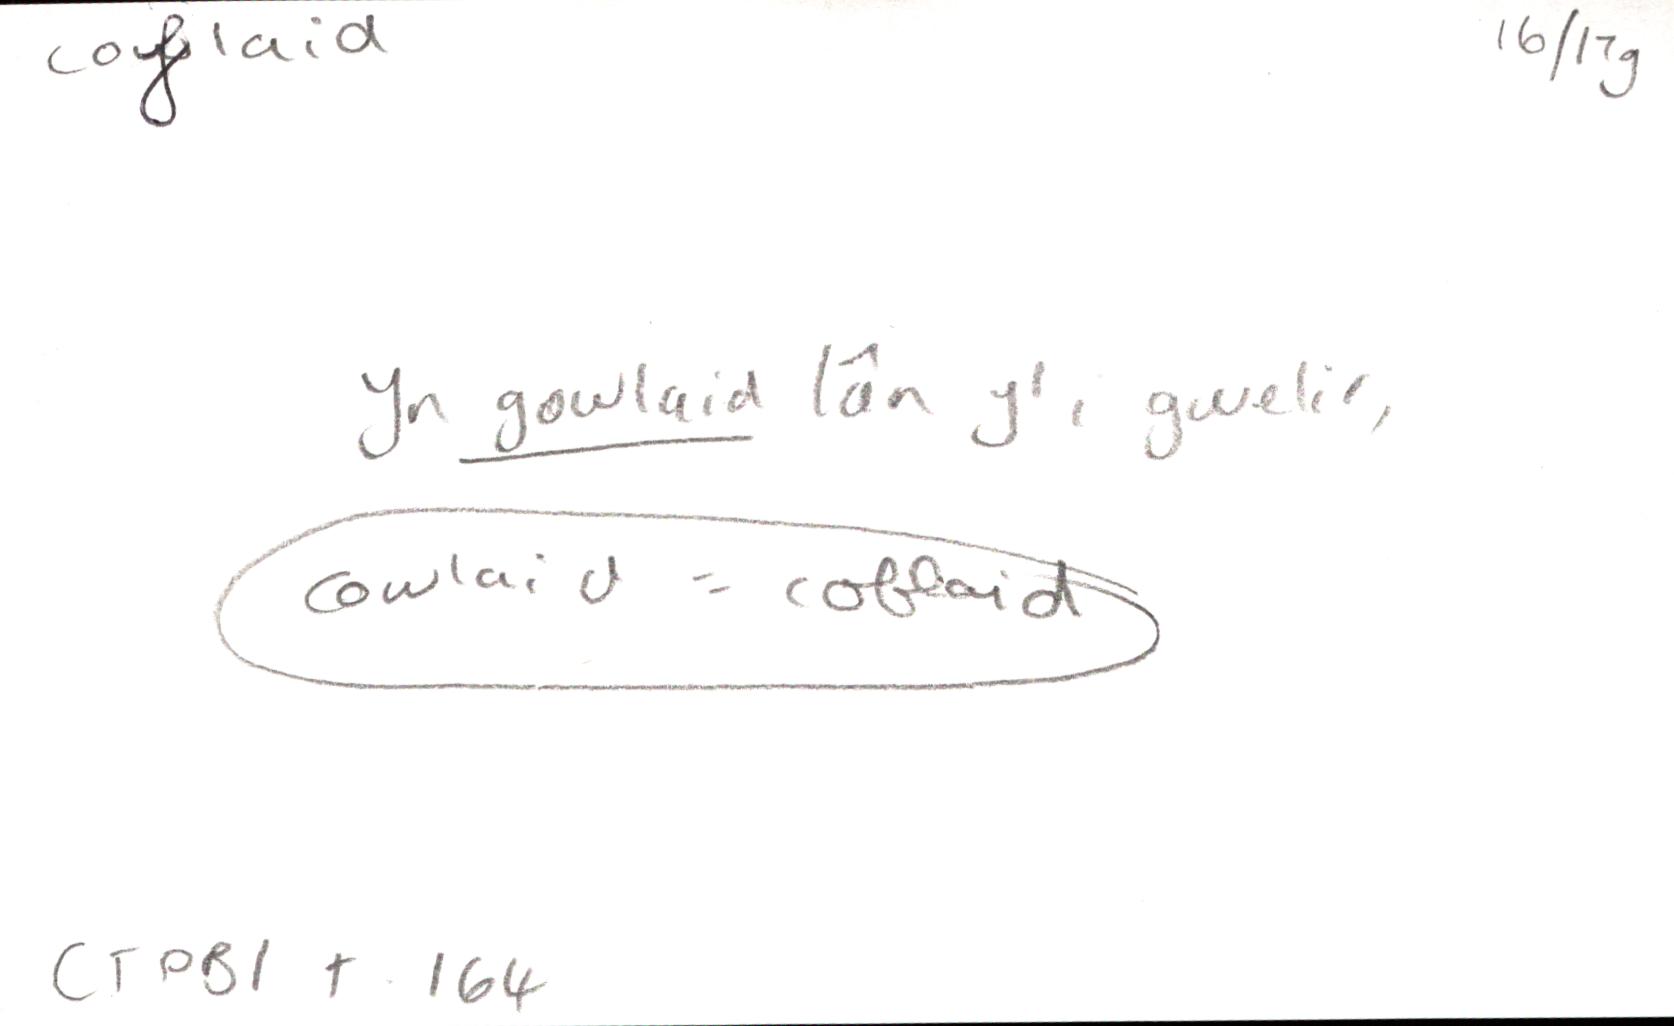 cofflaid 16/17g
Yn gowlaid lân y'i gwelir,
cowlaid = cofflaid
CTPB1 t. 164